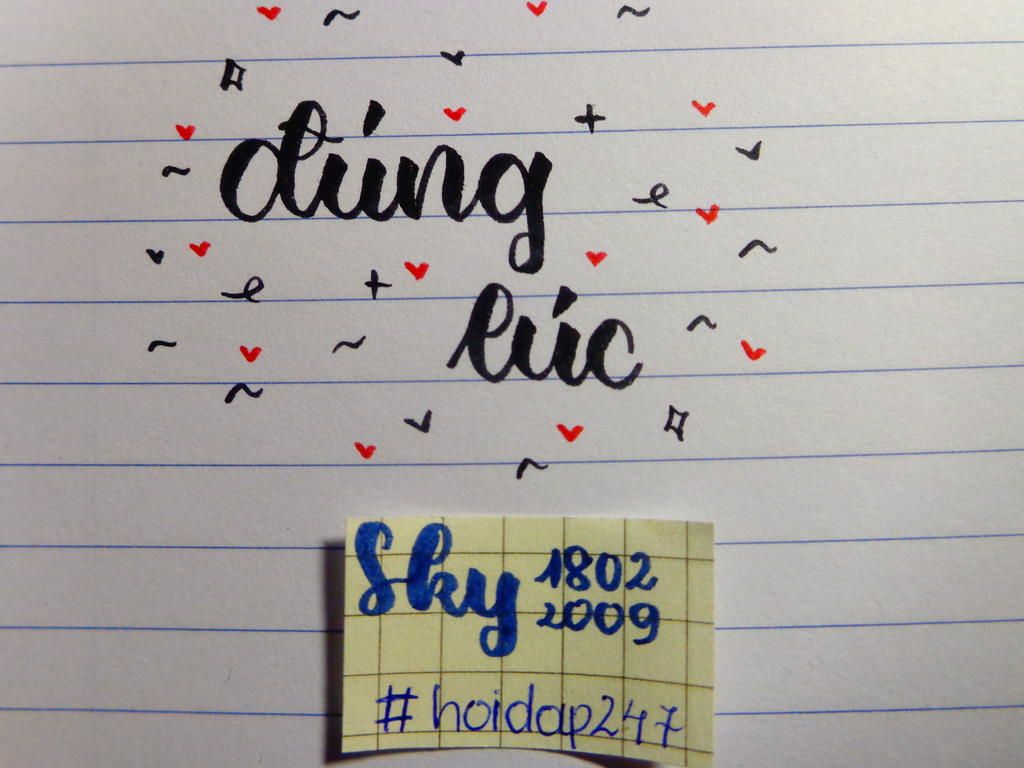 đúng
lúc
Sky 1802
2009
#hoidap247